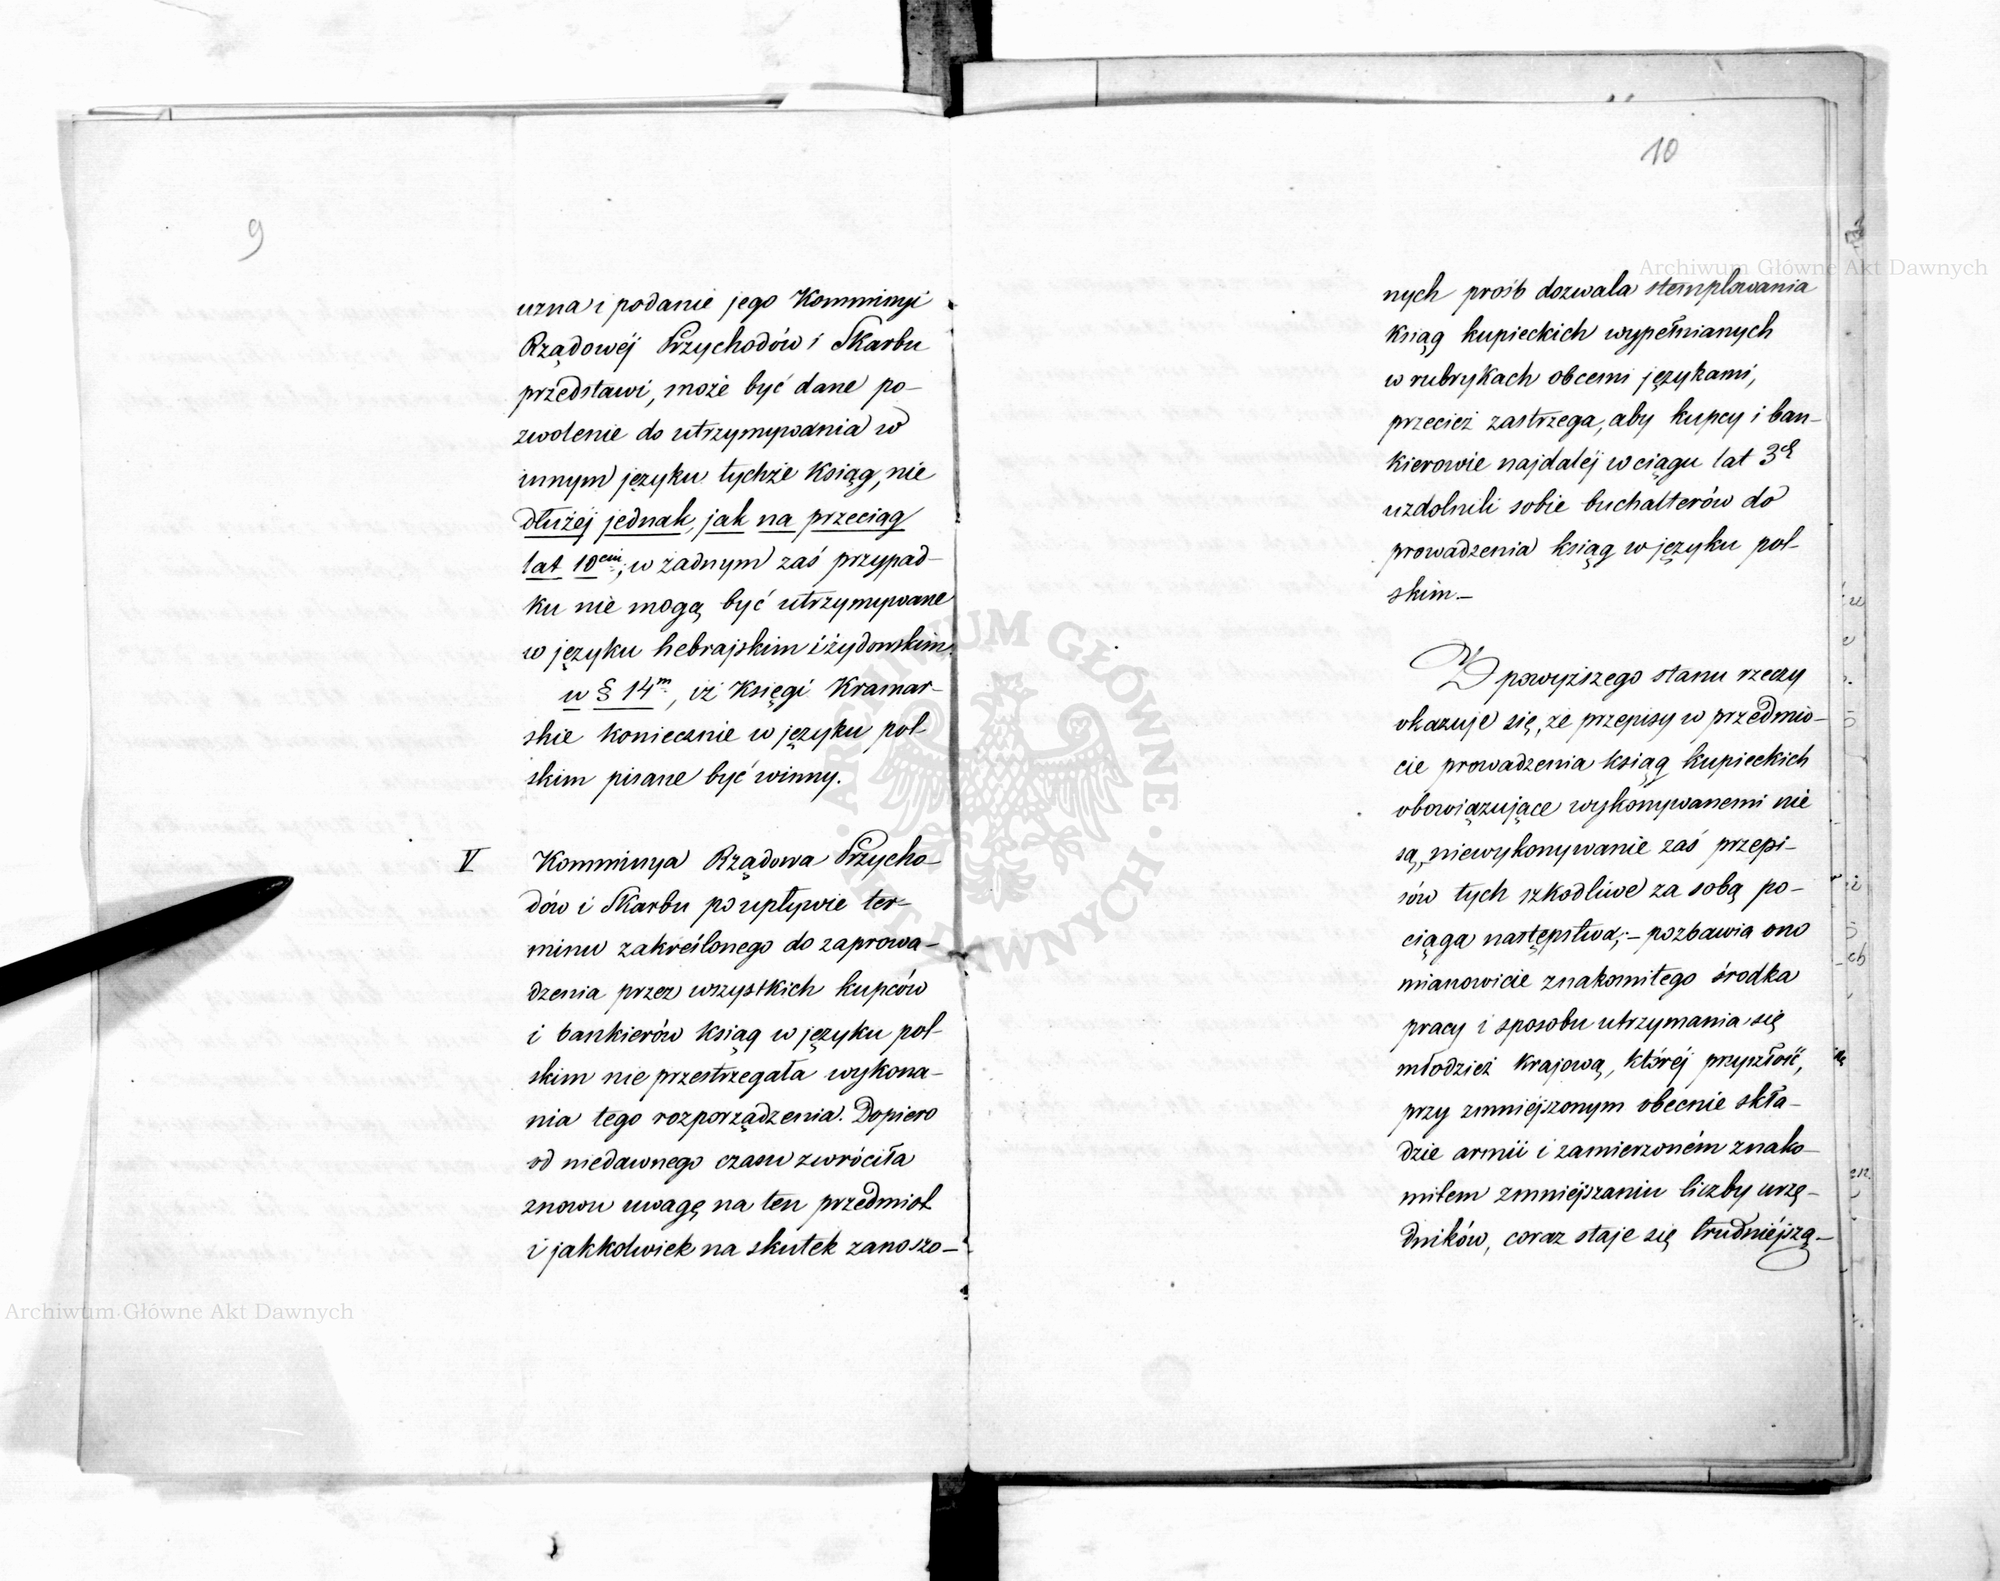 9
uzna i podanie jego Kommissyi
Rządowéj Przychodów i Skarbu
przedstawi, może być dane po-
zwolenie do utrzymywania w
innym języku tychże Ksiąg, nie
dłużej jednak, jak na przeciąg
lat 10ciu, w żadnym zaś przypad-
ku nie mogą być utrzymywane
w języku hebrajskim i żydowskim.
w § 14m, iż Księgi Kramar-
skie koniecznie w języku pol-
skim pisane być winny.
V Kommissya Rządowa Przycho-
dów i Skarbu po upływie ter-
minu zakreślonego do zaprowa-
dzenia przez wszystkich kupców
i bankierów ksiąg w języku pol-
skim nie przestrzegała wykona-
nia tego rozporządzenia. Dopiero
od niedawnego czasu zwróciła
znowu uwagę na ten przedmiot
i jakkolwiek na skutek zanoszo-
10
nych prośb dozwala stemplowania
ksiąg kupieckich wypełnianych
w rubrykach obcemi językami,
przecież zastrzega, aby kupcy i ban-
kierowie najdaléj w ciągu lat 3ch
uzdolnili sobie buchalterów do
prowadzenia ksiąg w języku pol-
skim.-
Z powyższego stanu rzeczy
okazuje się, że przepisy w przedmio-
cie prowadzenia ksiąg kupieckich
obowiązujące wykonywanemi nie
są, niewykonywanie zaś przepi-
sów tych szkodliwe za sobą po-
ciąga następstwa;- pozbawia ono
mianowicie znakomitego środka
pracy i sposobu utrzymania się
młodzież krajową, któréj przyszłość,
przy zmniejszonym obecnie skła-
dzie armii i zamierzoném znako-
mitem zmniejszaniu liczby urzę-
dników, coraz staje się trudniéjszą.-
Archiwum Główne Akt Dawnych
Archiwum Główne Akt Dawnych
ARCHIWUM GŁÓWNE AKT DAWNYCH